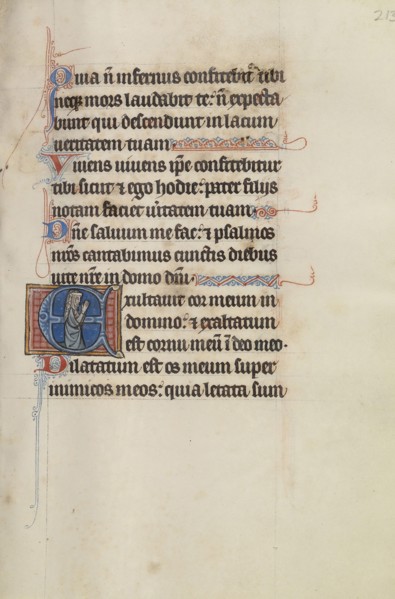 213
Quia n̄ infernus confitebit᷑ tibi
neq; mors laudabit te: n̄ expecta
bunt qui descendunt in lacum
ueritatem tuam
Viuens uiuens ip̄e confitebitur
tibi sicut ⁊ ego hodie: pater filijs
notam faciet u̅itatem tuam
Dn̄e saluum me fac: ⁊ psalmos
nr̄os cantabimus cunctis diebus
uite nr̄e in domo dn̄i
Exultauit cor meum in
domino: ⁊ exaltatum
est cornu meū ī deo meo.
Dilatatum est os meum super
inimicos meos: quia letata sum